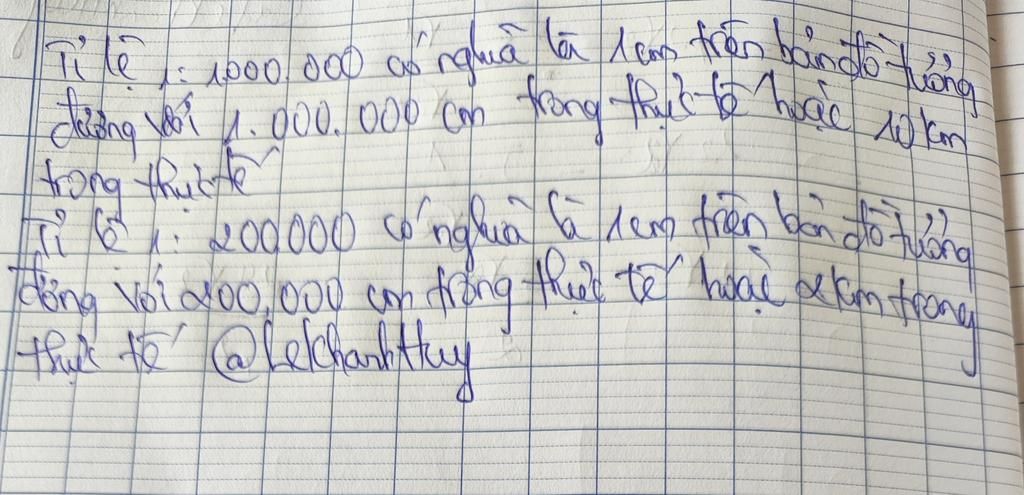 Tỉ lệ 1: 1.000.000 có nghĩa là 1cm trên bản đồ tương
đương với 1.000.000 cm trong thực tế hoặc 10 km
trong thực tế
Tỉ lệ 1: 200000 có nghĩa là 1cm trên bản đồ tương
đương với 200.000 cm trong thực tế hoặc 2km trong
thực tế @LekhanhHuy